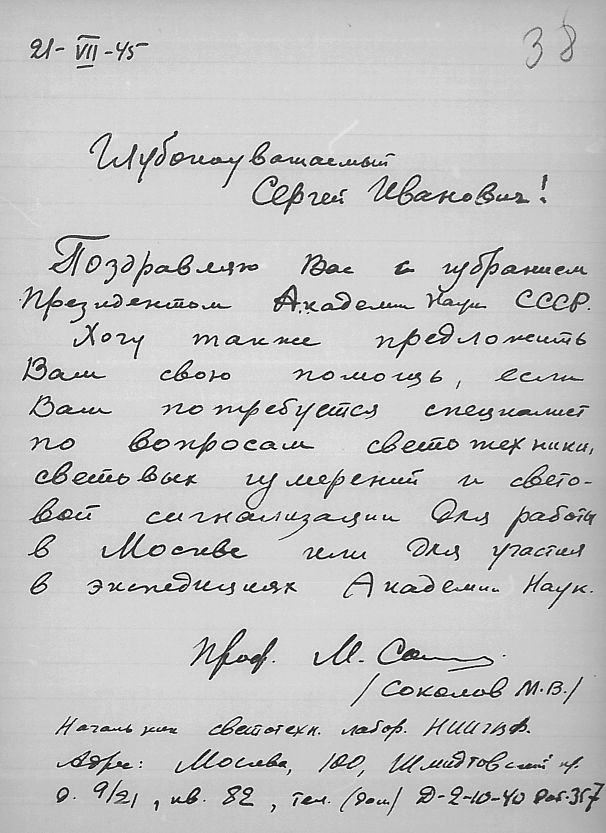 21-VII-45
38
Глубокоуважаемый
Сергей Иванович!
Поздравляю Вас с избранием
Президентом Академии Наук СССР.
Хочу также предложить
Вам свою помощь, если
Вам потребуется специалист
по вопросам светотехники,
световых измерений и свето-
вой сигнализации для работы
в Москве или для участия
в экспедициях Академии Наук.
Проф. М. Сок
/Соколов М.В./
Начальник светотехн. лабор. НИИГВФ.
Адрес: Москва, 100, Шмидтовский пр.
д. 9/21, кв. 82, тел. (дом) Д-2-10-40 доб. 357